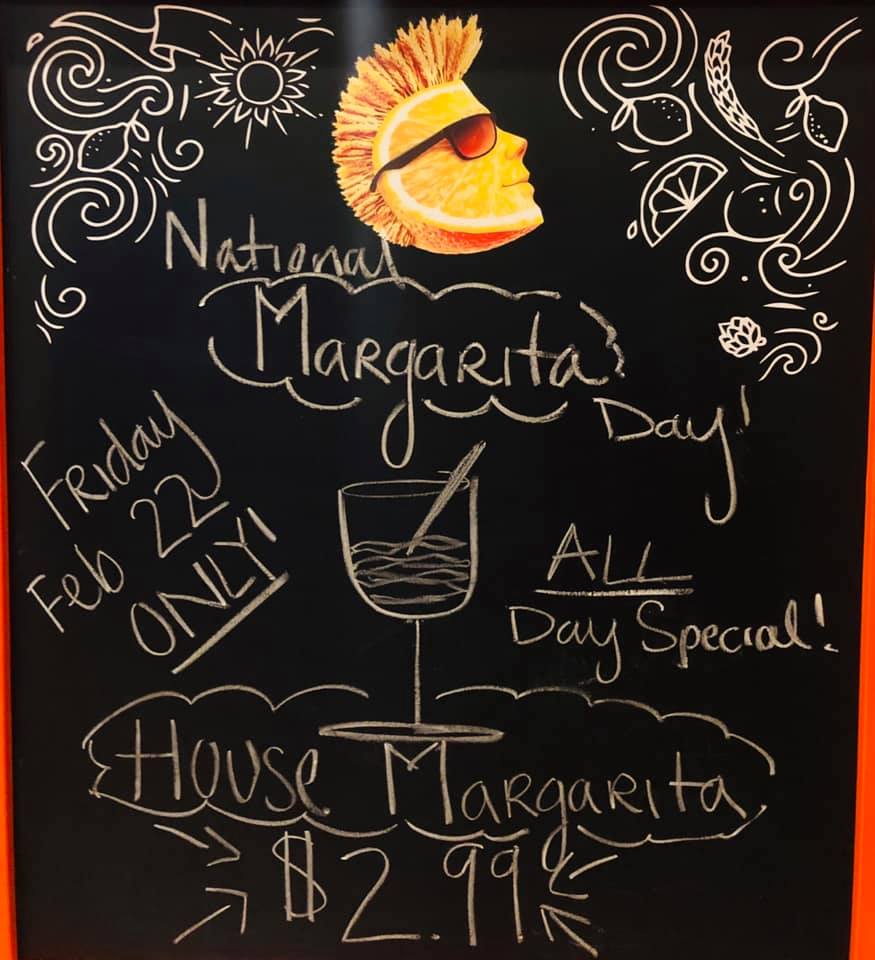 National
Margarita
Day!
Friday
Feb 22
ONLY!
ALL
Day Special!
House Margarita
$2.99